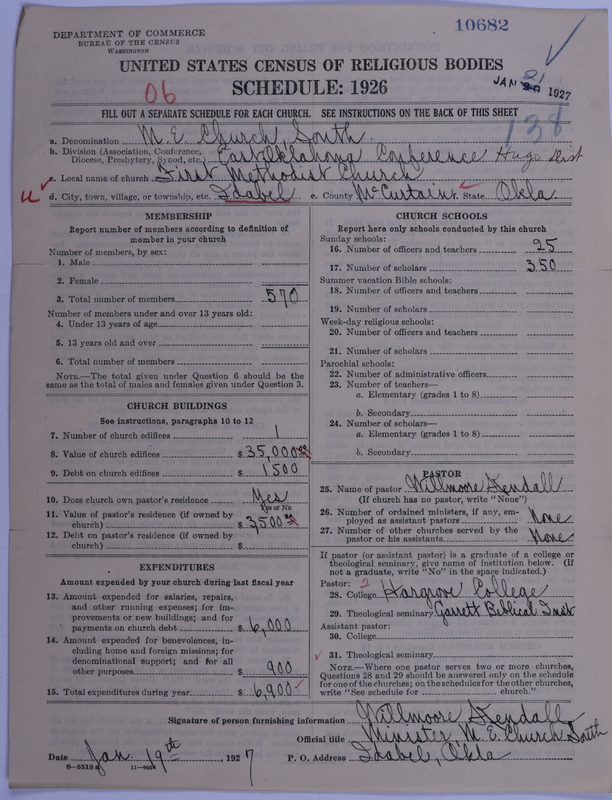 10682
DEPARTMENT OF COMMERCE
BUREAU OF THE CENSUS
WASHINGTON
UNITED STATES CENSUS OF RELIGIOUS BODIES
SCHEDULE: 1926
JAN 21 1927
06
FILL OUT A SEPARATE SCHEDULE FOR EACH CHURCH. SEE INSTRUCTIONS ON THE BACK OF THIS SHEET
138
a. Denomination M. E. Church, South.
b. Division (Association, Conference, Diocese, Presbytery, Synod, etc.) East Oklahoma Conference Hugo Dist
c. Local name of church First Methodist Church
d. City, town, village, or township, etc. Idabel e. County McCurtain State Okla
MEMBERSHIP
Report number of members according to definition of
member in your church
Number of members, by sex:
1. Male
2. Female
3. Total number of members 570
Number of members under and over 13 years old:
4. Under 13 years of age
5. 13 years old and over
6. Total number of members
NOTE.—The total given under Question 6 should be the
same as the total of males and females given under Question 3.
CHURCH BUILDINGS
See instructions, paragraphs 10 to 12
7. Number of church edifices 1
8. Value of church edifices $ 35,000 00
9. Debt on church edifices $ 1500
10. Does church own pastor's residence Yes
Yes or No
11. Value of pastor's residence (if owned by
church) $ 3,500 00
12. Debt on pastor's residence (if owned by
church) $
EXPENDITURES
Amount expended by your church during last fiscal year
13. Amount expended for salaries, repairs,
and other running expenses; for im-
provements or new buildings; and for
payments on church debt $ 6,000
14. Amount expended for benevolences, in-
cluding home and foreign missions; for
denominational support; and for all
other purposes $ 900
15. Total expenditures during year $ 6,900
CHURCH SCHOOLS
Report here only schools conducted by this church
Sunday schools:
16. Number of officers and teachers 25
17. Number of scholars 350
Summer vacation Bible schools:
18. Number of officers and teachers
19. Number of scholars
Week-day religious schools:
20. Number of officers and teachers
21. Number of scholars
Parochial schools:
22. Number of administrative officers
23. Number of teachers—
a. Elementary (grades 1 to 8)
b. Secondary
24. Number of scholars—
a. Elementary (grades 1 to 8)
b. Secondary
PASTOR
25. Name of pastor Willmoore Kendall
(If church has no pastor, write "None")
26. Number of ordained ministers, if any, em-
ployed as assistant pastors None
27. Number of other churches served by the
pastor or his assistants None
If pastor (or assistant pastor) is a graduate of a college or
theological seminary, give name of institution below. (If
not a graduate, write "No" in the space indicated.)
Pastor: 2
28. College Hargrove College
29. Theological seminary Garrett Biblical Inst
Assistant pastor:
30. College
31. Theological seminary
NOTE.—Where one pastor serves two or more churches,
Questions 28 and 29 should be answered only on the schedule
for one of the churches; on the schedules for the other churches,
write "See schedule for church."
Signature of person furnishing information Willmoore Kendall
Official title Minister, M. E. Church South
Date Jan. 19th, 1927 P. O. Address Idabel, Okla
8—5516 a 11—9054